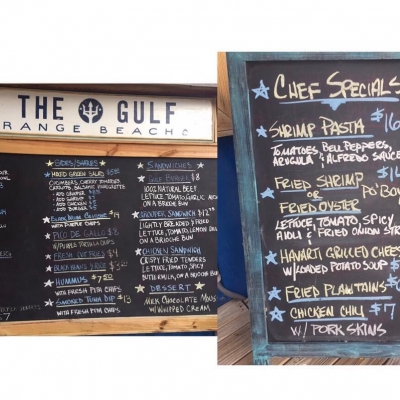 THE GULF
RANGE BEACH
SIDES/SHARES
MIXED GREEN SALAD
CUCUMBERS, CHERRY TOMATOES
CARROTS, BALSAMIC VINAIGRETTE
ADD SHRIMP
ADD CHICKEN
ADD BURGER
$9
WITH PURPLE CHIPS
PICO DE GALLO $8
W/PURPLE TORTILLA CHIPS
FRESH CUT FRIES $4
BLACK BEANS & RICE $3
HUMMUS $7
WITH FRESH PITA CHIPS
SMOKED TUNA DIP $13
WITH FRESH PITA CHIPS
SANDWICHES
GULF BURGER $8
100% NATURAL BEEF
LETTUCE, TOMATO, ONION
ON A BRIOCHE BUN
GROUPER SANDWICH $12
LIGHTLY BREADED & FRIED
LETTUCE, TOMATO, LEMON
ON A BRIOCHE BUN
CHICKEN SANDWICH
CRISPY FRIED TENDERS
LETTUCE, TOMATO, SPICY
BUTTERMILK, ON A BRIOCHE BUN
DESSERT
MILK CHOCOLATE MOUS
W/WHIPPED CREAM
CHEF SPECIALS
SHRIMP PASTA $16
TOMATOES, BELL PEPPERS,
ARUGULA & ALFREDO SAUCE
$1
FRIED SHRIMP
OR PO' BOY
FRIED OYSTER
LETTUCE, TOMATO, SPICY
AIOLI & FRIED ONION STR
HAVARTI GRILLED CHEES
W/LOADED POTATO SOUP $
FRIED PLANTAINS $
CHICKEN CHILI $7
W/ PORK SKINS